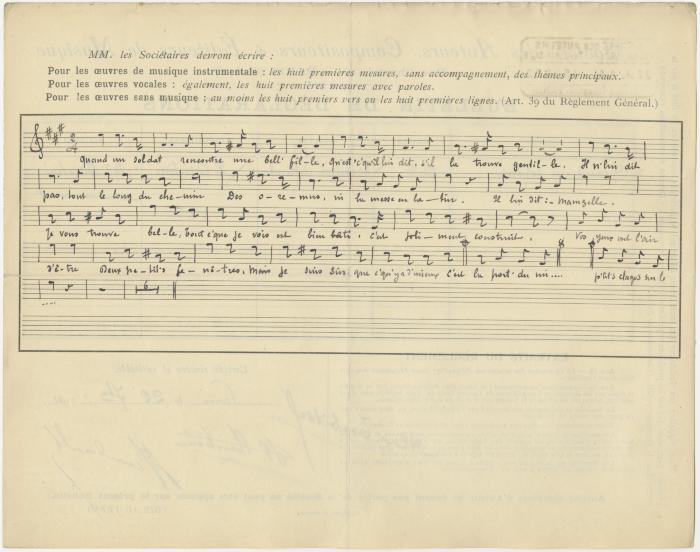 MM. les Sociétaires devront écrire :
Pour les œuvres de musique instrumentale : les huit premières mesures, sans accompagnement, des thèmes principaux.
Pour les œuvres vocales : également, les huit premières mesures avec paroles.
Pour les œuvres sans musique : au moins les huit premiers vers ou les huit premières lignes. (Art. 39 du Règlement Général.)
Quand un soldat rencontre une bell' fil-le, Qu'est-c'qu'il lui dit, s'il la trouve gentil-le. Il n'lui dit
pas, tout le long du che-min Des o-re-mus, ni la messe en la-tin. Il lui dit :- Mamzelle.
Je vous trouve bel-le, Tout c'que je vois est bien bâti, c'est joli-ment construit, Vos yeux ont l'air
d'ê-tre Deux pe-tit's fe-nê-tres, Mais je suis sûr que c'qu'y a d'mieux c'est la port' du mi.... p'tits étages sur le
....